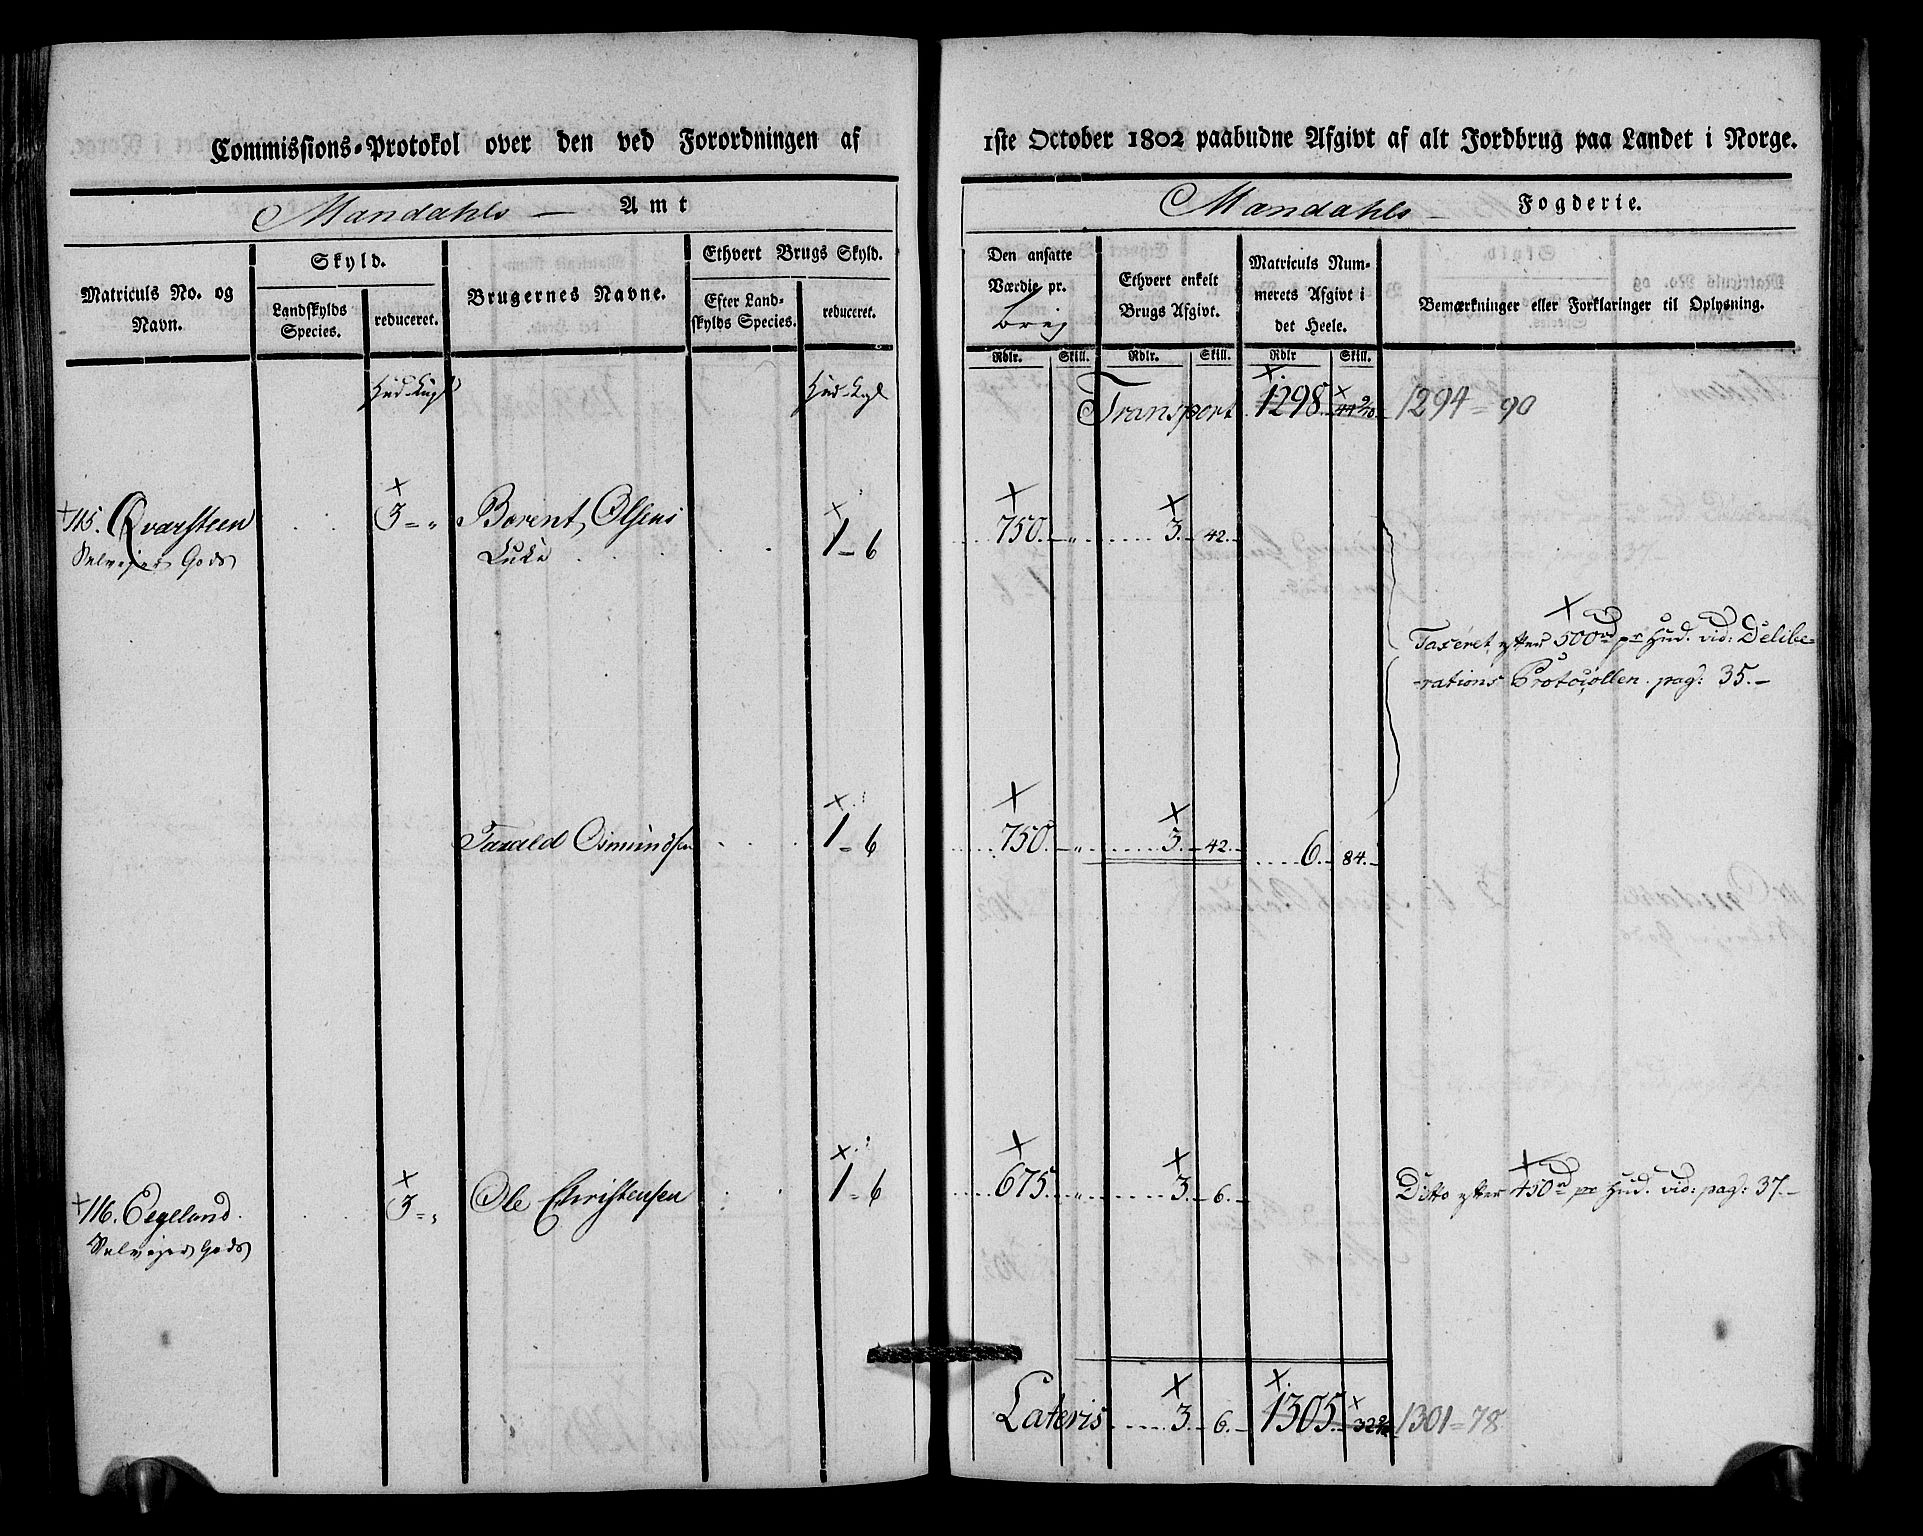 Commissions-Protokol over den ved Forordningen af
Mandahls Amt
Matriculs No. og Navn.
Skyld.
Landskylds Species.
reduceret.
Brugernes Navne.
Ethvert Brugs Skyld.
Efter Landskylds Species.
reduceret.
115. Qvarsteen
3 = „
Berent Olsens
1 - 6
Selveyer Gods
Taxald Osmundsen
1 - 6
116. Eegeland
3 = „
Ole Christensen
1 - 6
Selveyer Gods
1ste October 1802 paabudne Afgivt af alt Jordbrug paa Landet i Norge.
Mandahls Fogderie.
Den ansatte
Værdie pr.
Ethvert enkelt
Brugs Afgivt.
Matriculs Num-
merets Afgivt i
det Heele.
Bemærkninger eller Forklaringer til Oplysning.
Rdlr. Skill. Rdlr. Skill. Rdlr Skill.
Transport 1298. 1294 = 90
750. „ 3. 42.
Taxeret efter 500rd pr Hud. vid: Delibe-
-rations Protocollen pag: 35.
750. „ 3. 42. 6. 84.
675. „ 3. 6. Ditto efter 450rd pr Hud. vid: pag: 37.
Lateris 3. 6. 1305. 1301 = 78